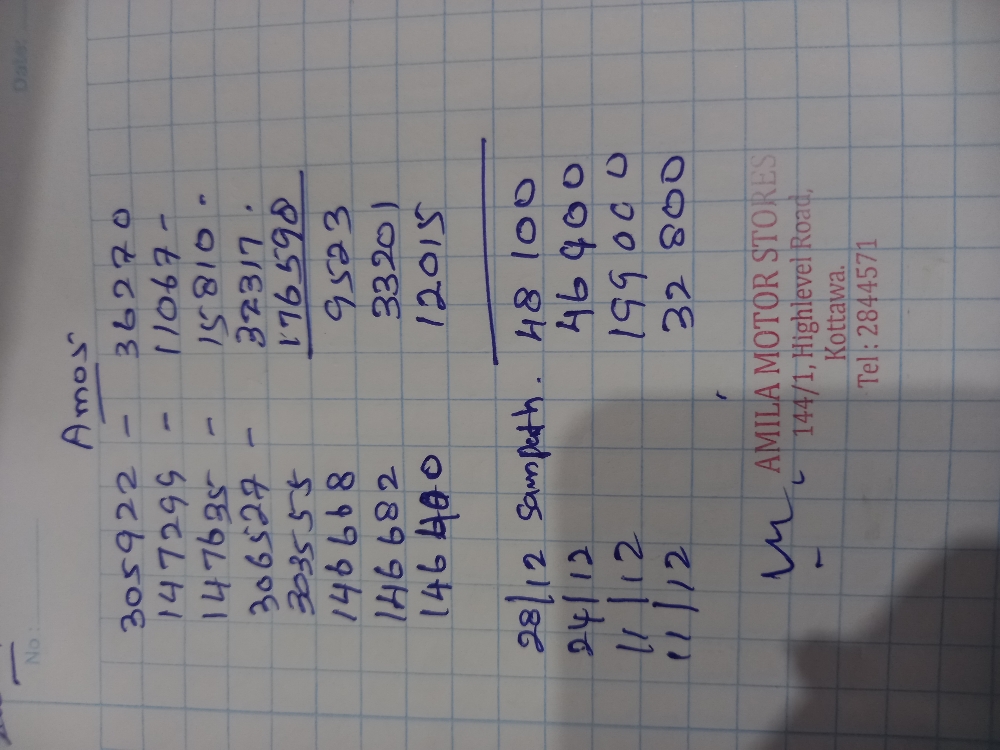 Date:
No:
Amos
305922 - 36270
147299 - 11067-
147635 - 15810.
306527 - 32317.
303555 176598
146668 9523
146682 33201
12015
28/12 Sampath. 48 100
24/12 46400
11/12 199000
11/12 32 800
AMILA MOTOR STORES
144/1, Highlevel Road,
Kottawa.
Tel : 2844571